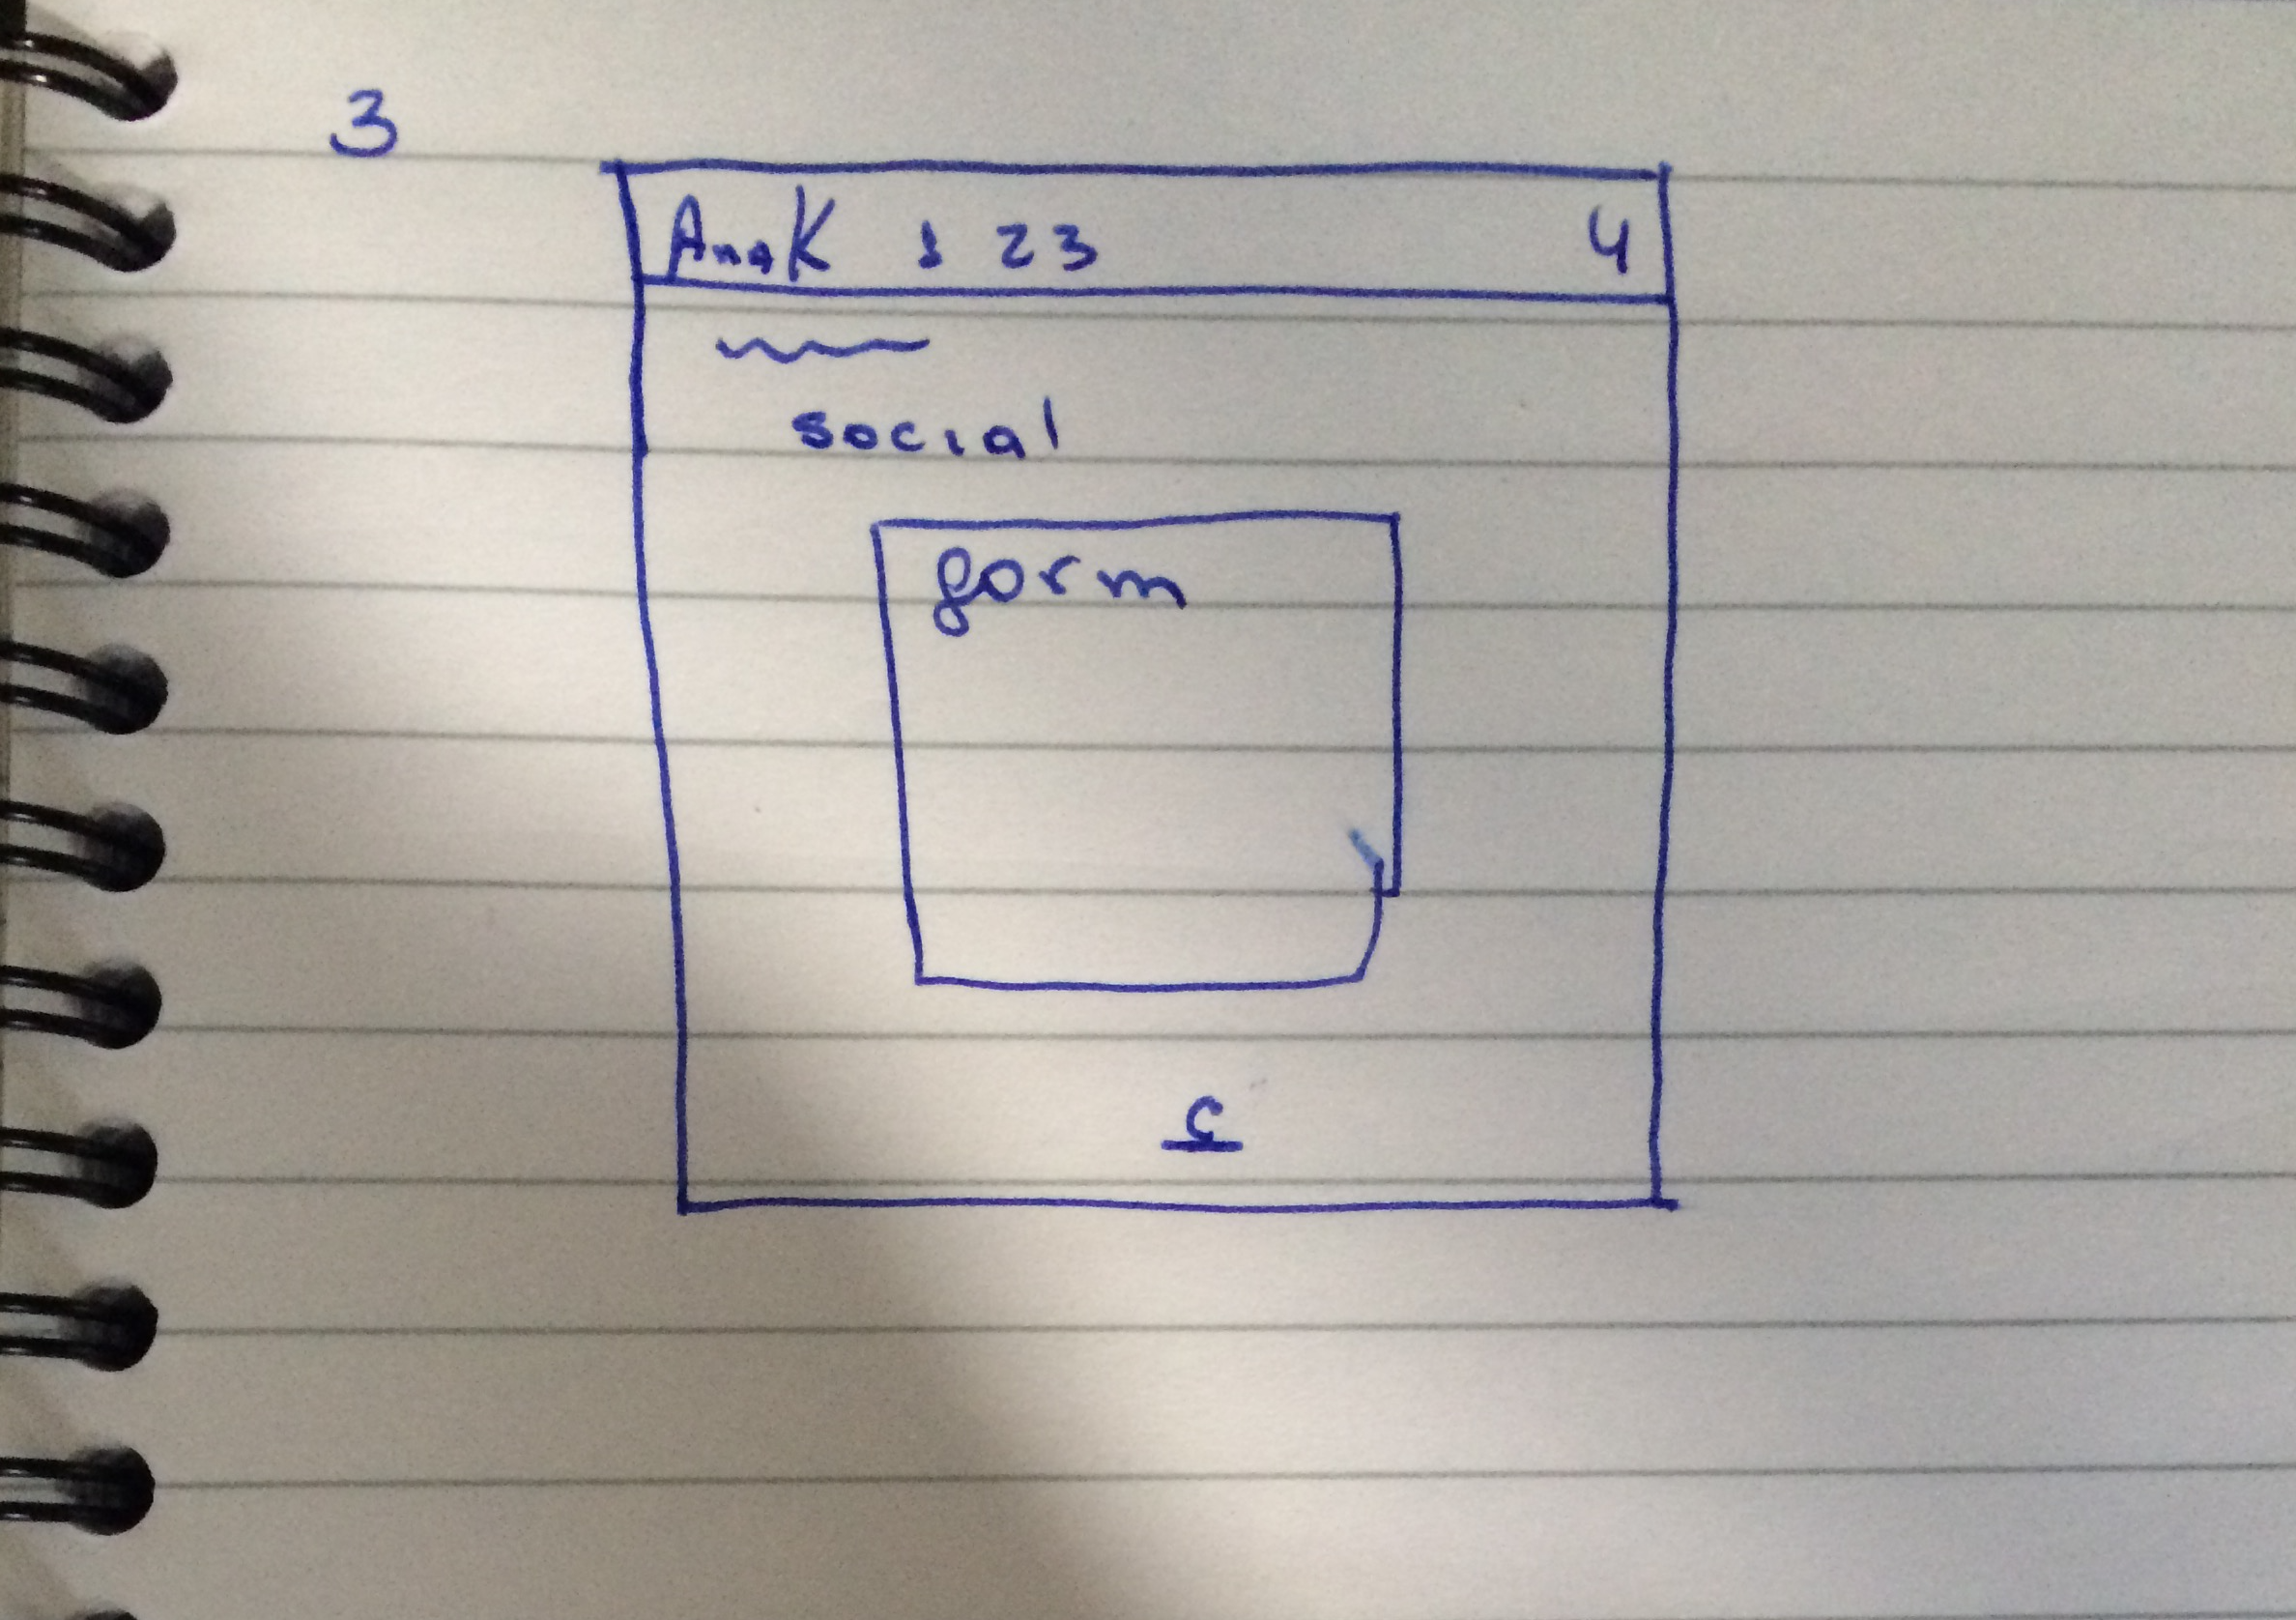 3
AnaK 1 2 3 4
social
form
c